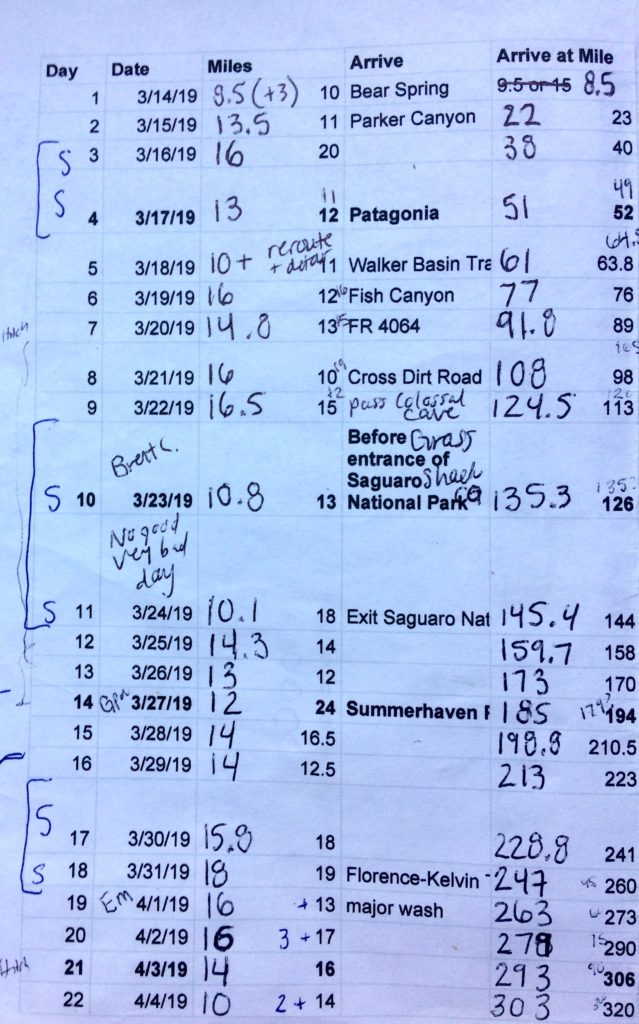 Day Date Miles Arrive Arrive at Mile
1 3/14/19 8.5 (+3) 10 Bear Spring 9.5 or 15 8.5
2 3/15/19 13.5 11 Parker Canyon 22 23
S 3 3/16/19 16 20 38 40
11 49
S 4 3/17/19 13 12 Patagonia 51 52
reroute
5 3/18/19 10+ + detour 11 Walker Basin Tra 61 63.8
6 3/19/19 16 12 16 Fish Canyon 77 76
Hitch 7 3/20/19 14.8 13 15 FR 4064 91.8 89
8 3/21/19 16 10 19 Cross Dirt Road 108 98
9 3/22/19 16.5 15 12 pass Colossal Cave 124.5 113
Brent C.
Before Grass
entrance of
Saguaro Shack
S 10 3/23/19 10.8 13 National Park CG 135.3 126
No good
very bad
day
S 11 3/24/19 10.1 18 Exit Saguaro Nat 145.4 144
12 3/25/19 14.3 14 159.7 158
13 3/26/19 13 12 173 170
14 3/27/19 12 24 Summerhaven 185 194
15 3/28/19 14 16.5 198.8 210.5
16 3/29/19 14 12.5 213 223
S
17 3/30/19 15.8 18 228.8 241
S 18 3/31/19 18 19 Florence-Kelvin 247 260
19 Em 4/1/19 16 + 13 major wash 263 273
20 4/2/19 16 3 + 17 279 290
Hitch 21 4/3/19 14 16 293 306
22 4/4/19 10 2 + 14 303 320